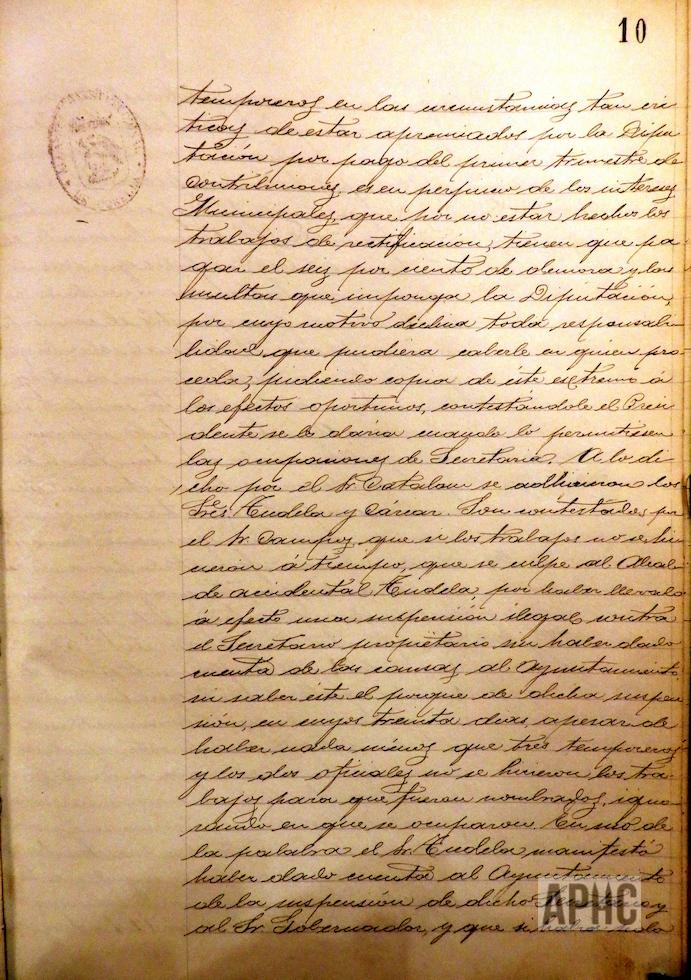 10
temporeros en las circunstancias tan crí
ticas de estar apremiados por la Dipu
tación por pago del primer trimestre de
contribuciones, es en perjuicio de los intereses
Municipales, que por no estar hechos los
trabajos de rectificación, tienen que pa
gar el seis por ciento de demora y las
multas que imponga la Diputación,
por cuyo motivo declina toda responsabi
lidad que pudiera caberle en quien pro
ceda, pidiendo copia de éste estremo á
los efectos oportunos, contestándole el Presi
dente se le daria cuando lo permitiesen
las ocupaciones de Secretaria. A lo di
cho por el Sr. Catalan se adhirieron los
Sres. Tudela y Cáscar. Son contestados por
el Sr. Campos, que si los trabajos no se hi
cieron á tiempo, que se culpe al Alcal
de accidental Tudela, por haber llevado
á efecto una suspensión ilegal contra
el Secretario propietario sin haber dado
cuenta de las causas al Ayuntamiento,
ni saber éste el porque de dicha suspen
sión, en cuyos treinta dias, apesar de
haber nada ménos que tres temporeros
y los dos oficiales no se hicieron los tra
bajos para que fueron nombrados, igno
rando en que se ocuparon. En uso de
la palabra el Sr. Tudela manifestó
haber dado cuenta al Ayuntamiento
de la suspensión de dicho Secretario y
al Sr. Gobernador, y que si
APHC